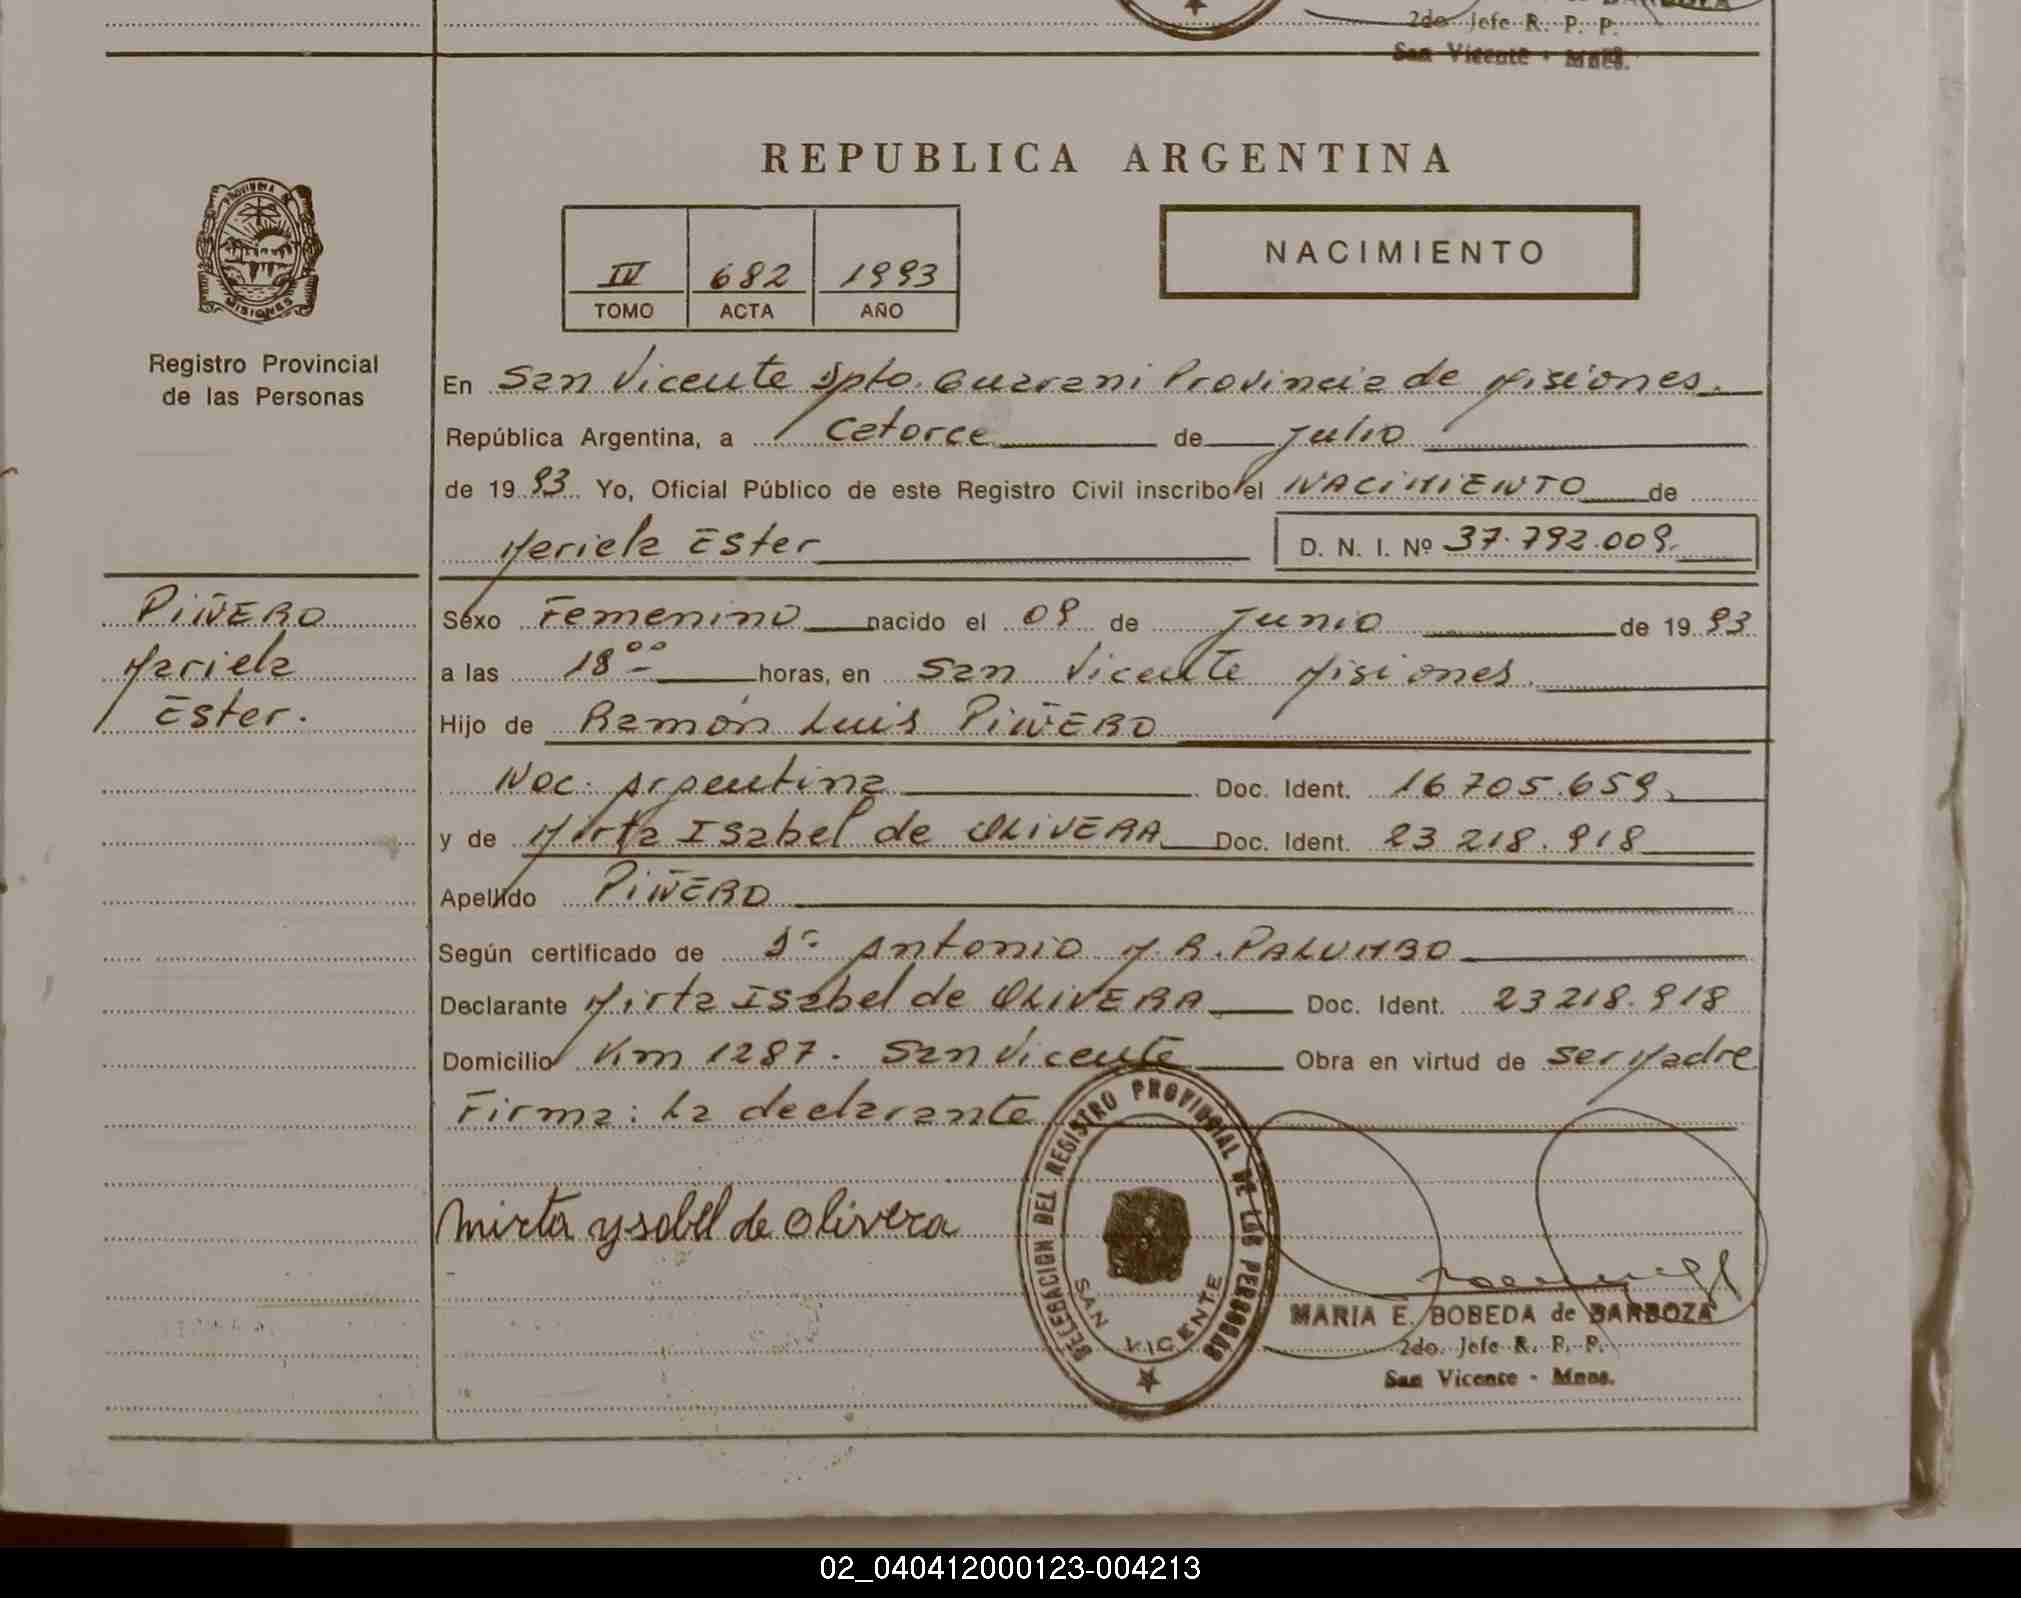 2do. Jefe R. P. P.
San Vicente - Mnes.
REPUBLICA ARGENTINA
PROVINCIA DE
MISIONES
Registro Provincial
de las Personas
IV 682 1993
TOMO ACTA AÑO
NACIMIENTO
En San Vicente Dpto. Guarani Provincia de Misiones.
República Argentina, a Catorce de Julio
de 19 93 Yo, Oficial Público de este Registro Civil inscribo el NACIMIENTO de
Mariela Ester D. N. I. Nº 37.792.009.
PIÑERO
Mariela
Ester.
Sexo Femenino nacido el 09 de Junio de 19 93
a las 18 00 horas, en San Vicente Misiones.
Hijo de Ramón Luis PIÑERO
Nac. Argentina Doc. Ident. 16 705.659.
y de Mirta Isabel de OLIVERA Doc. Ident. 23 218.918
Apellido PIÑERO
Según certificado de Dr. Antonio M. R. PALUMBO
Declarante Mirta Isabel de OLIVERA Doc. Ident. 23 218.918
Domicilio Km 1287. San Vicente Obra en virtud de ser Madre
Firma: La declarante
Mirta ysabel de Olivera
DELEGACION DEL REGISTRO PROVINCIAL DE LAS PERSONAS
SAN VICENTE
MARIA E. BOBEDA de BARBOZA
2do. Jefe R. P. P.
San Vicente - Mnes.
02_040412000123-004213